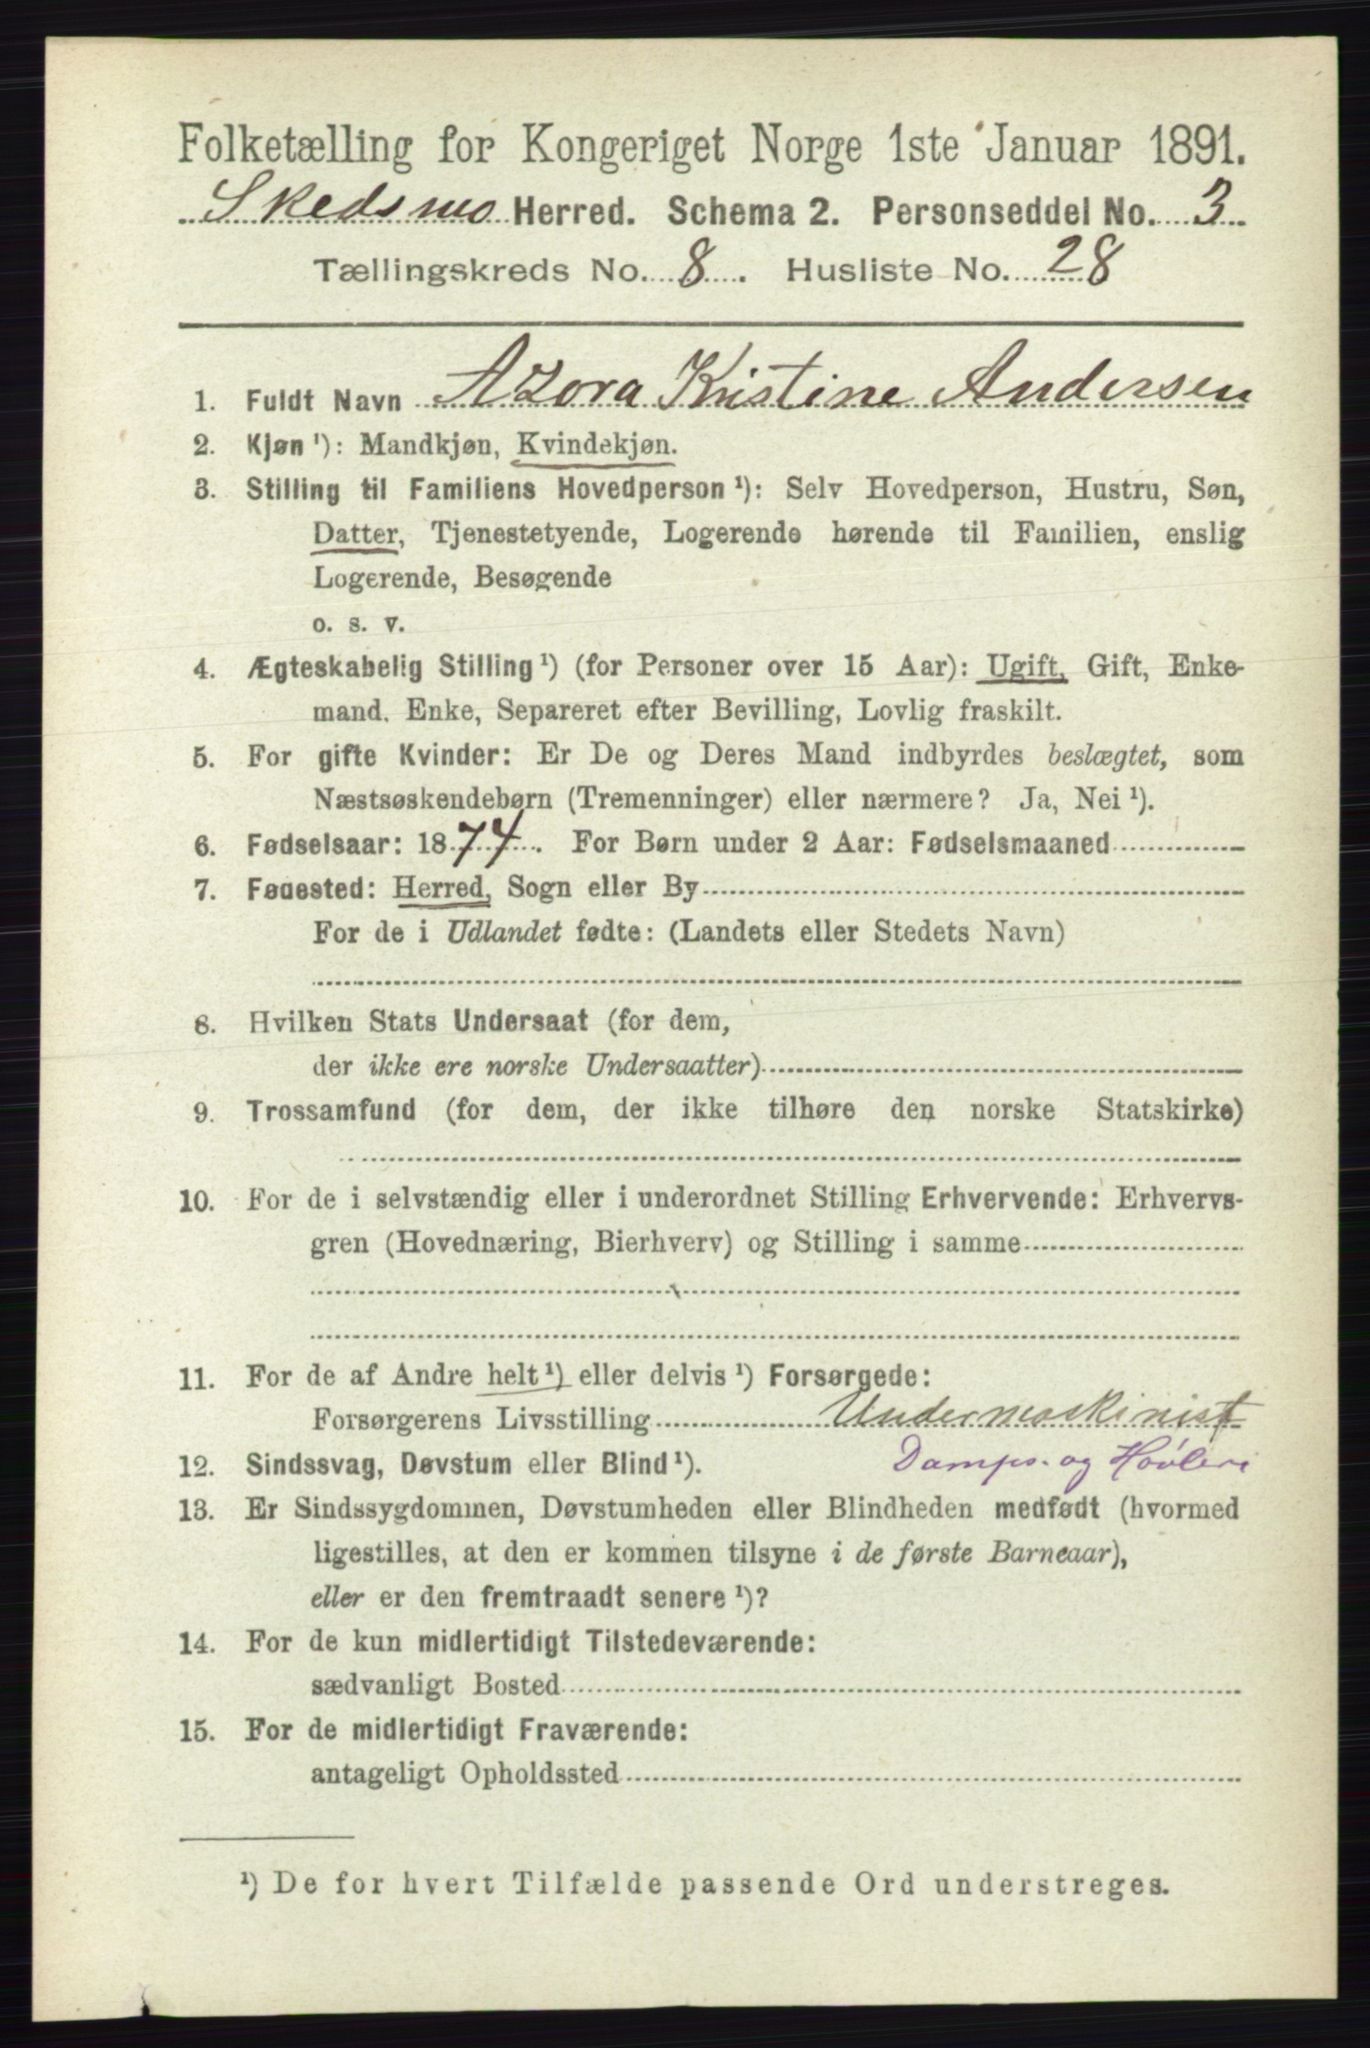 Folketælling for Kongeriget Norge 1ste Januar 1891.
Skedsmo Herred. Schema 2. Personseddel No. 3
Tællingskreds No. 8. Husliste No. 28
1. Fuldt Navn Azora Kristine Andersen
2. Kjøn ¹): Mandkjøn, Kvindekjøn.
3. Stilling til Familiens Hovedperson ¹): Selv Hovedperson, Hustru, Søn,
Datter, Tjenestetyende, Logerende hørende til Familien, enslig
Logerende, Besøgende
o. s. v.
4. Ægteskabelig Stilling ¹) (for Personer over 15 Aar): Ugift, Gift, Enke-
mand, Enke, Separeret efter Bevilling, Lovlig fraskilt.
5. For gifte Kvinder: Er De og Deres Mand indbyrdes beslægtet, som
Næstsøskendebørn (Tremenninger) eller nærmere? Ja, Nei ¹).
6. Fødselsaar: 1874. For Børn under 2 Aar: Fødselsmaaned
7. Fødested: Herred, Sogn eller By
For de i Udlandet fødte: (Landets eller Stedets Navn)
8. Hvilken Stats Undersaat (for dem,
der ikke ere norske Undersaatter)
9. Trossamfund (for dem, der ikke tilhøre den norske Statskirke)
10. For de i selvstændig eller i underordnet Stilling Erhvervende: Erhvervs-
gren (Hovednæring, Bierhverv) og Stilling i samme
11. For de af Andre helt ¹) eller delvis ¹) Forsørgede:
Forsørgerens Livsstilling Undermaskinist
12. Sindssvag, Døvstum eller Blind ¹). Damps. og Høvleri
13. Er Sindssygdommen, Døvstumheden eller Blindheden medfødt (hvormed
ligestilles, at den er kommen tilsyne i de første Barneaar),
eller er den fremtraadt senere ¹)?
14. For de kun midlertidigt Tilstedeværende:
sædvanligt Bosted
15. For de midlertidigt Fraværende:
antageligt Opholdssted
¹) De for hvert Tilfælde passende Ord understreges.